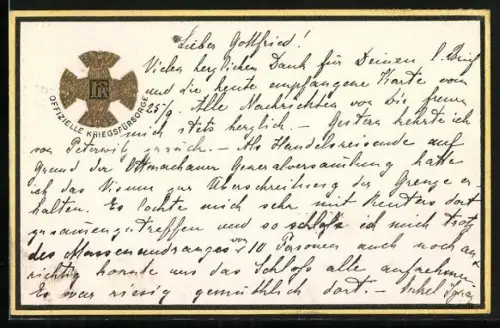 Lieber Gottfried!
Vielen herzlichen Dank für Deinen l. Brief
und die heute empfangene Karte vom
25/9. Alle Nachrichten von Dir freuen
mich stets herzlich. – Gestern kehrte ich
von Peterwitz zurück. – Als Handelsreisende auf
Grund der Ottmachauer Generalversammlung hatte
ich das Visum zur Überschreitung der Grenze er-
halten. Es lockte mich sehr mit dort
zusammenzutreffen und so schloß ich mich trotz
des Massenandranges von 10 Personen auch noch an
richtig konnte uns das Schloß alle aufnehmen
Es war riesig gemütlich dort. –
OFFIZIELLE KRIEGSFÜRSORGE